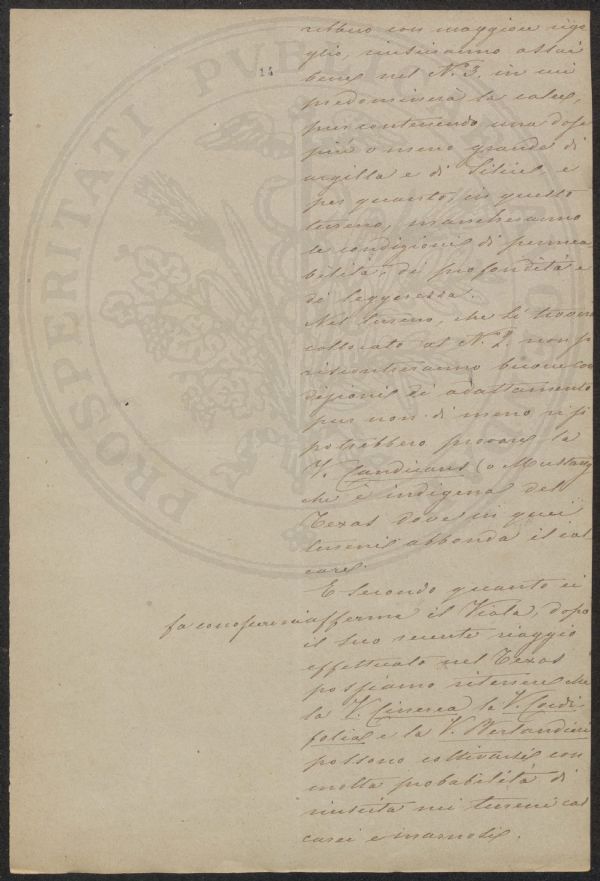 14
PROSPERITATI PUBLICAE
rebbero con maggiore rigo-
glio, riusciranno assai
bene nel N. 3, in cui
predominerà la calce,
pur contenendo una dose
più o meno grande di
argilla e di Silice, e
per quanto, in questo
terreno, mancheranno
le condizioni di permea
bilità, di profondità e
di leggerezza.
Nel terreno, che si trova
collocato al N. 2. non si
riscontreranno buone con
dizioni di adattamento
pur non di meno vi si
potrebbero provare la
V. Candicans (o Mustang
che è indigena del
Texas dove in quei
terreni abbonda il cal
care.
E secondo quanto ci
fa conoscere afferma il Viala, dopo
il suo recente viaggio
effettuato nel Texas
possiamo ritenere che
la V. Cinerea la V. Cordi
folia e la V. Berlandieri
possono coltivarsi con
molta probabilità di
riuscita nei terreni cal
carei e marnosi.